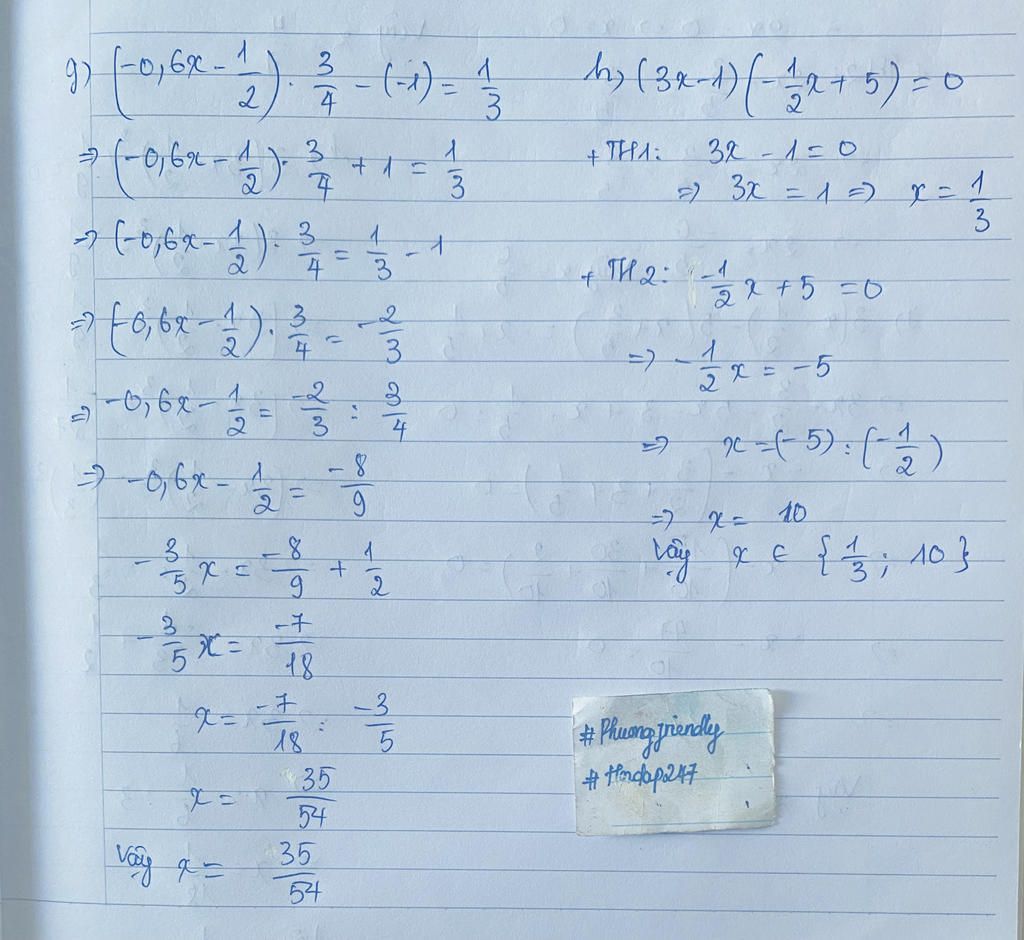 g) (-0,6x - 1/2) . 3/4 - (-1) = 1/3
=> (-0,6x - 1/2) . 3/4 + 1 = 1/3
=> (-0,6x - 1/2) . 3/4 = 1/3 - 1
=> (-0,6x - 1/2) . 3/4 = -2/3
=> -0,6x - 1/2 = -2/3 : 3/4
=> -0,6x - 1/2 = -8/9
-3/5 x = -8/9 + 1/2
-3/5 x = -7/18
x = -7/18 : -3/5
x = 35/54
Vậy x = 35/54
h) (3x-1)(-1/2 x + 5) = 0
+ TH1: 3x - 1 = 0
=> 3x = 1 => x = 1/3
+ TH2: -1/2 x + 5 = 0
=> -1/2 x = -5
=> x = (-5) : (-1/2)
=> x = 10
Vậy x ∈ {1/3; 10}
#Phuongfriendly
#Hoidap247